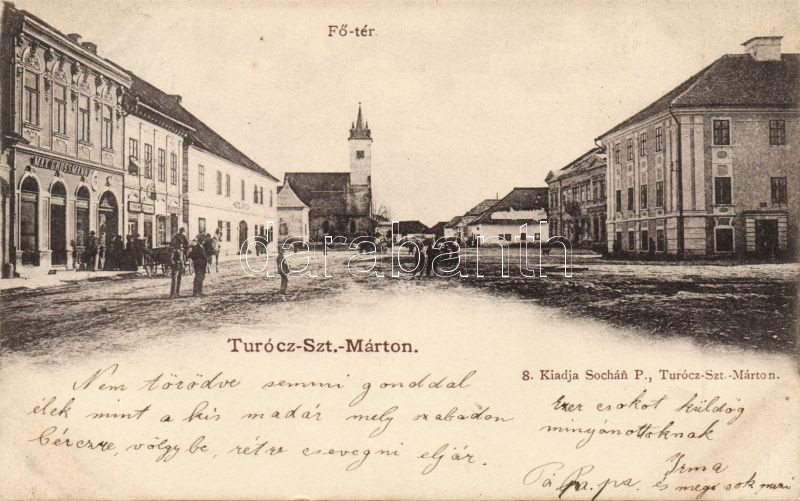 Fő-tér.
MAX GROSSMANN
darabanth
Turócz-Szt.-Márton.
8. Kiadja Socháň P., Turócz-Szt.-Márton.
Nem törödve semmi gonddal
élek mint a kis madár mely szabadon
bérczre, völgybe, rétre csevegni eljár.
Ezer csokot küldög
minyánottoknak
Irma
Pá Pa. pa. és még sok